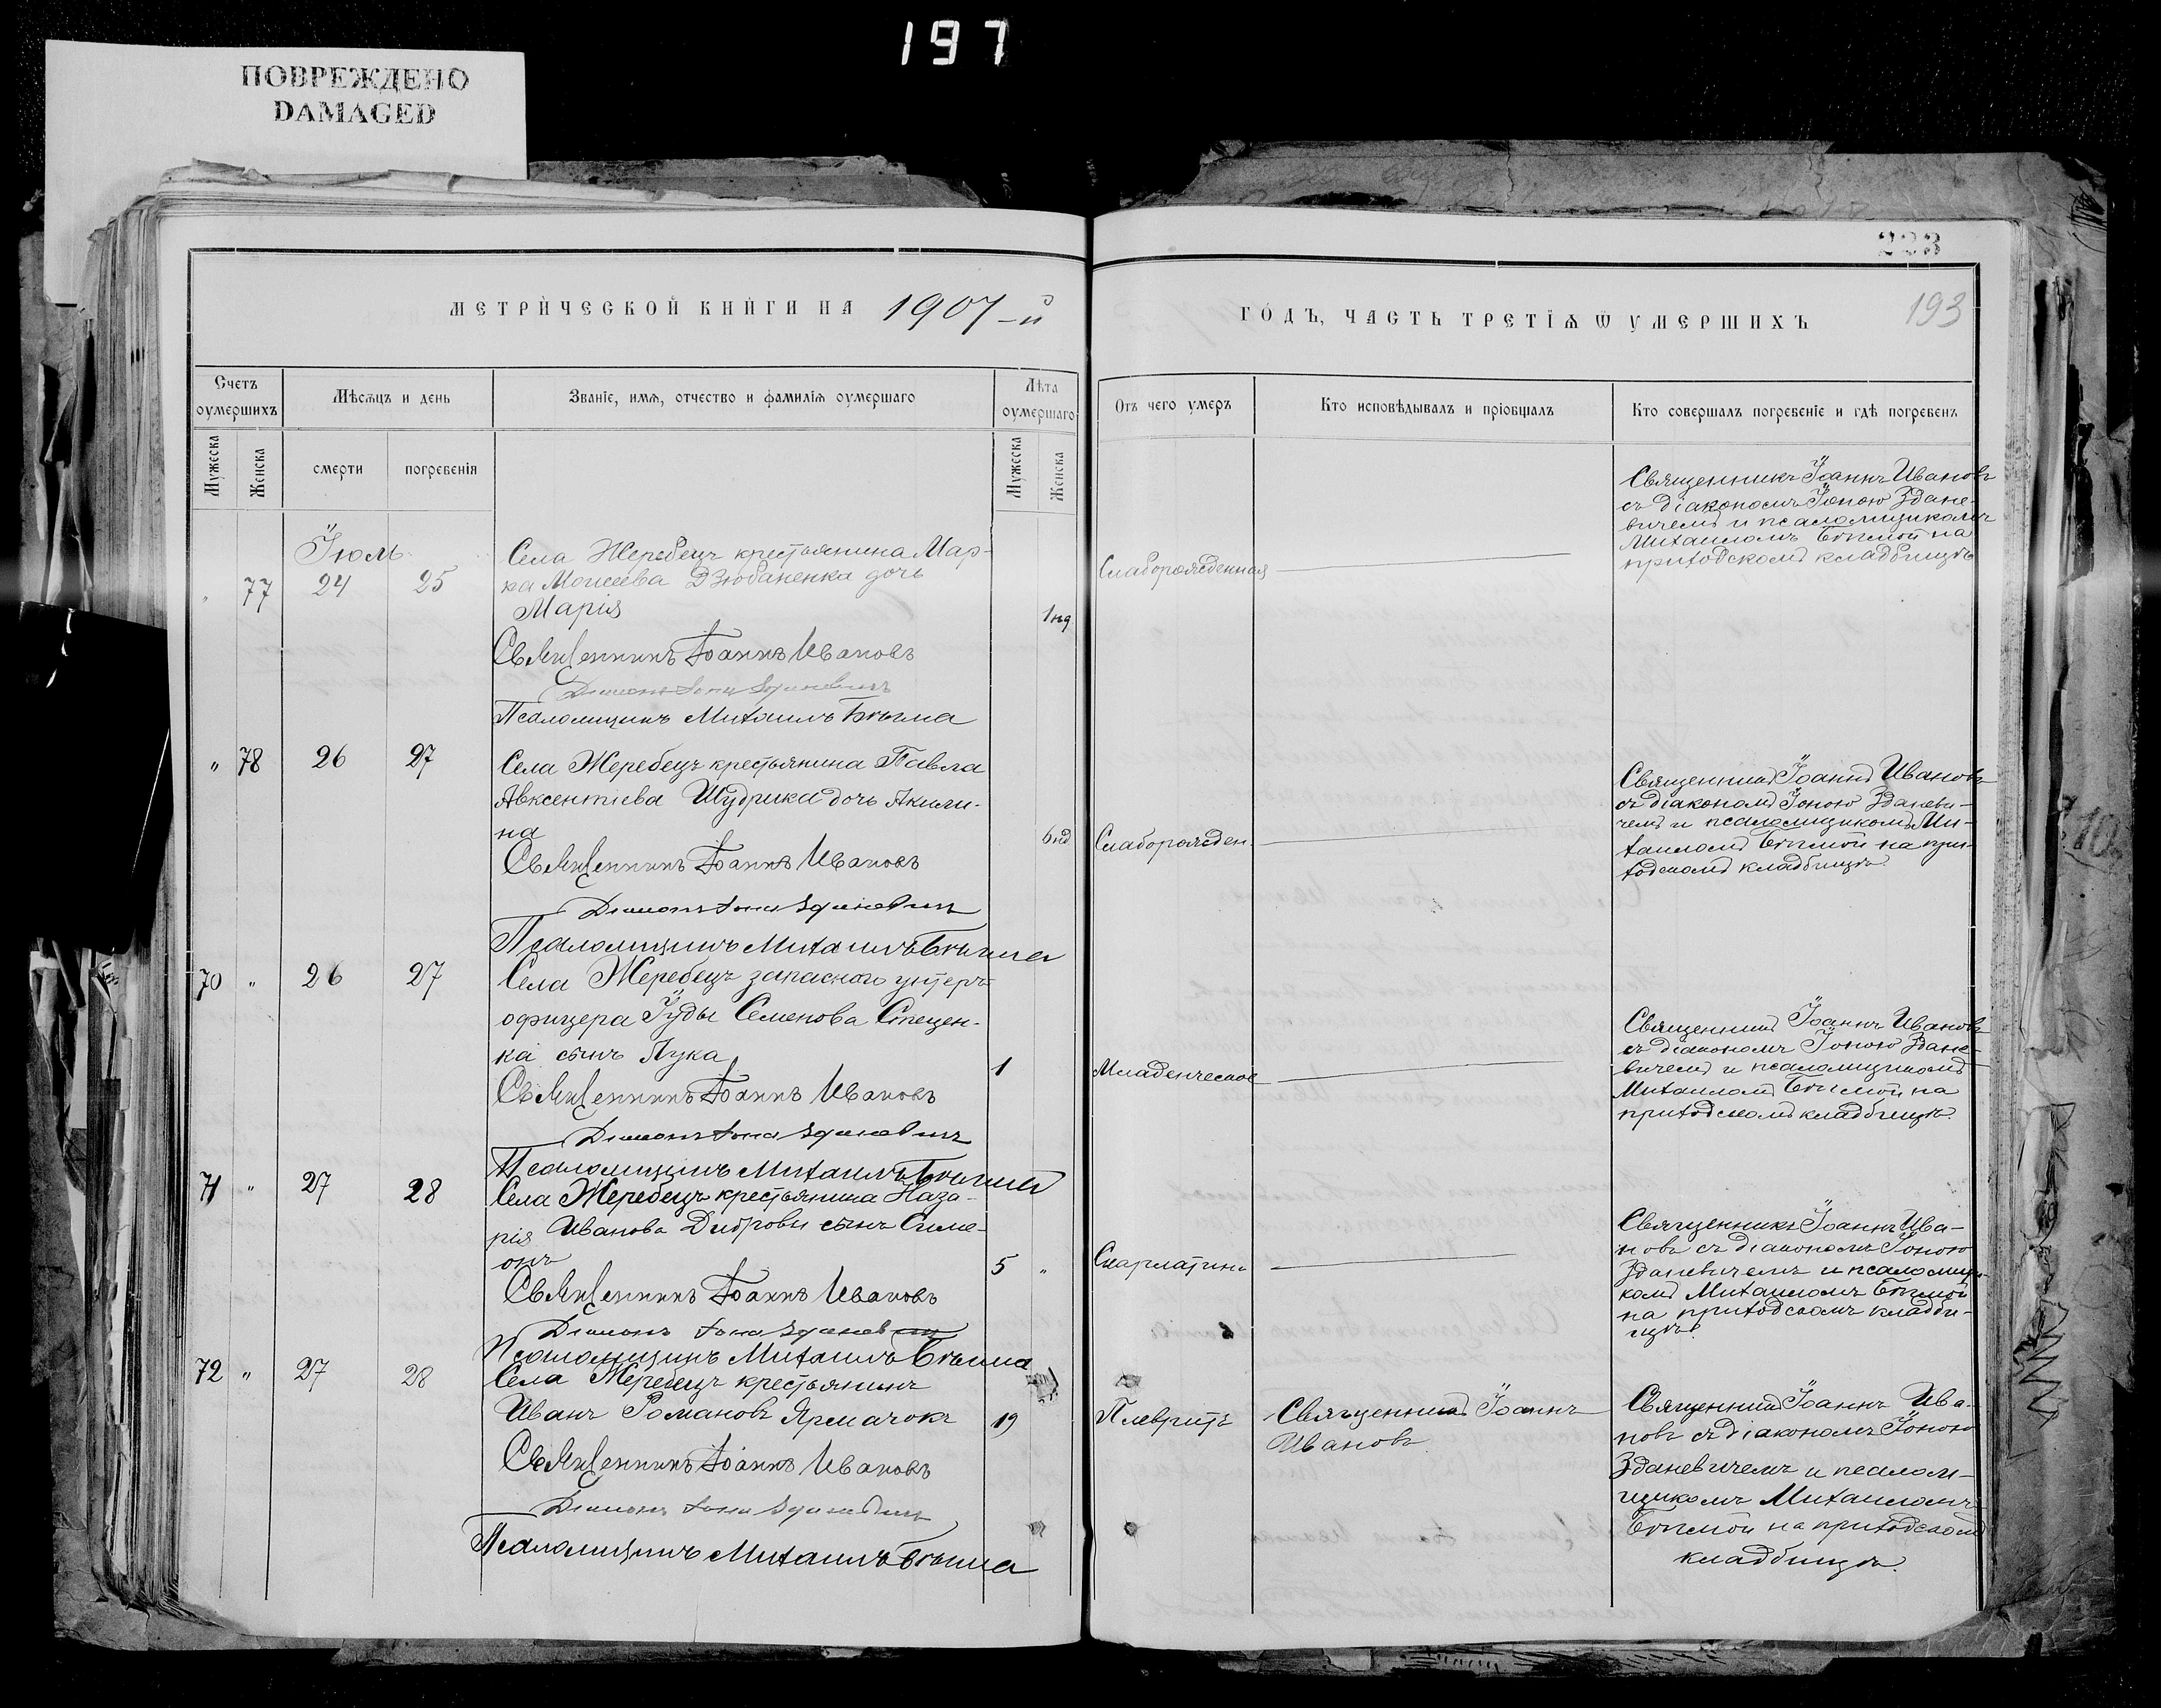 197
ПОВРЕЖДЕНО
DAMAGED
223
193
МЕТРИЧЕСКОЙ КНИГИ НА 1907-й
ГОДЪ, ЧАСТЬ ТРЕТІѦ Ѿ УМЕРШИХЪ
Счетъ оумершихъ
Мѣсѧцъ и день
Званіе, имѧ, отчество и фамиліѧ оумершаго
Лѣта оумершаго
Отъ чего умеръ
Кто исповѣдывалъ и пріобщалъ
Кто совершалъ погребеніе и гдѣ погребенъ
Мужеска
Женска
смерти
погребенія
Мужеска
Женска
Іюль
" 77 24 25
Села Жеребецъ крестьянина Мар-
ка Моисеева Дзюбаненка дочь
Марія
1 нд
Слаборожденная
Священникъ Іоаннъ Ивановъ
съ діакономъ Іоною Здане-
вичемъ и псаломщикомъ
Михаиломъ Бѣлмой на
приходскомъ кладбищѣ
Священникъ Іоаннъ Ивановъ
Діаконъ Іона Зданевичъ
Псаломщикъ Михаилъ
" 78 26 27
Села Жеребецъ крестьянина Павла
Авксентіева Шудрика дочь Акили-
на
6 нд
Слаборожден.
Священникъ Іоаннъ Ивановъ
съ діакономъ Іоною Здане-
чемъ и псаломщикомъ Ми-
хаиломъ на при-
ходскомъ кладбищѣ.
Священникъ Іоаннъ Ивановъ
Діаконъ Іона Зданевичъ
Псаломщикъ Михаилъ
70 " 26 27
Села Жеребецъ запасного унтеръ-
офицера Іуды Семенова Стецен-
ка сынъ Лука
1
Младенческое
Священникъ Іоаннъ Ивановъ
съ діакономъ Іоною Здане-
вичемъ и псаломщикомъ
Михаиломъ на
приходскомъ кладбищѣ.
Священникъ Іоаннъ Ивановъ
Діаконъ Іона Зданевичъ
Псаломщикъ Михаилъ
71 " 27 28
Села Жеребецъ крестьянина Наза-
рія Иванова Дибровы сынъ Симе-
онъ
5 "
Скарлатина
Священникъ Іоаннъ Ива-
новъ съ діакономъ Іоною
Зданевичемъ и псаломщи-
комъ Михаиломъ
на приходскомъ кладби-
щѣ.
Священникъ Іоаннъ Ивановъ
Діаконъ Іона Зданевичъ
Псаломщикъ Михаилъ
72 " 27 28
Села Жеребецъ крестьянинъ
Иванъ Романовъ Ярмачокъ
19
Плевритъ
Священникъ Іоаннъ
Ивановъ.
Священникъ Іоаннъ Ива-
новъ съ діакономъ Іоною
Зданевичемъ и псалом-
щикомъ Михаиломъ
на приходскомъ
кладбищѣ.
Священникъ Іоаннъ Ивановъ
Діаконъ Іона Зданевичъ
Псаломщикъ Михаилъ